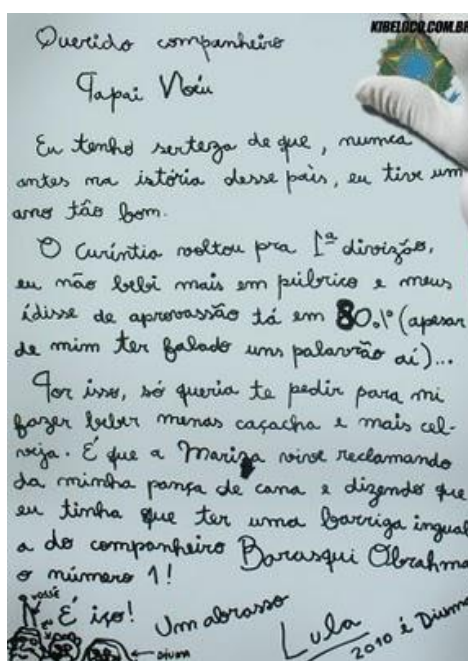 KIBELOCO.COM.BR
Querido companheiro
Papai Noéu
Eu tenho serteza de que, numca
antes na istória desse país, eu tive um
ano tão bom.
O Curíntia voltou pra 1ª divizão,
eu não bebi mais em púbrico e meus
ídisse de aprovassão tá em 80% (apesar
de mim ter falado uns palavrão aí)...
Por isso, só queria te pedir para mi
fazer beber menas caçacha e mais cel-
veja. É que a Mariza vive reclamando
da minha pança de cana e dizendo que
eu tinha que ter uma barriga ingual
a do companheiro Barasqui Obrahma
o número 1!
VOSSÊ
eu
É iço! Um abrasso
Lula
2010 é Diuma
DIUMA